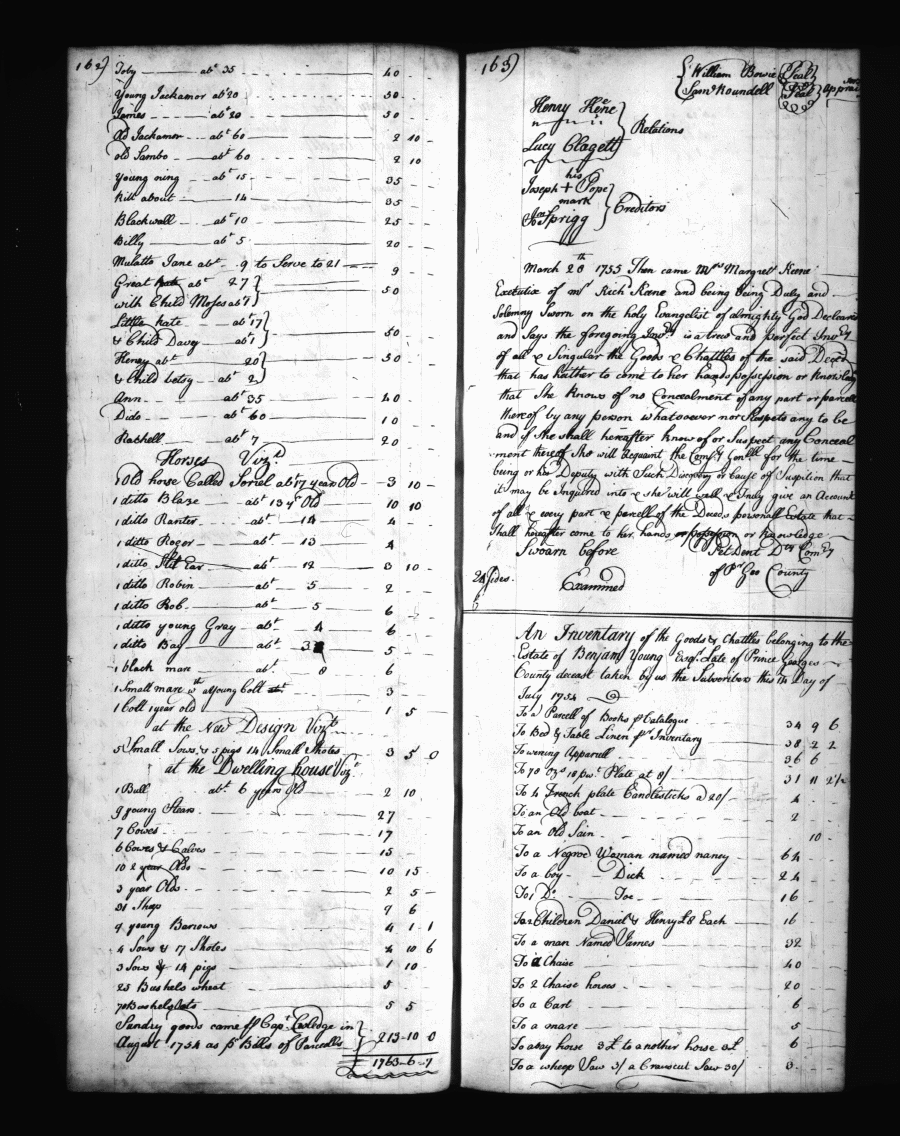 162)
Toby abt 35 40
Young Jackamor abt 20 50
James abt 20 50
Old Jackamor abt 60 2 10
old Sambo abt 60 2 10
Young ning abt 15 35
Kitt about 14 35
Blackwall abt 10 25
Billy abt 5 20
Mulatto Jane abt 9 to Serve to 21 9
Great Kate abt 27 50
with Child Moses abt 1
Little Kate abt 17
& Child Davey abt 1 50
Henny abt 20 50
& Child betsy abt 2
Ann abt 35 40
Dido abt 60 10
Rachell abt 7 20
Horses Vizt
1 Old horse Called Soriel abt 17 year Old 3 10
1 ditto Blaze abt 13 yr Old 10 10
1 ditto Ranter abt 14 4
1 ditto Roger abt 13 4
1 ditto Slit Ear abt 12 3 10
1 ditto Robin abt 5 2
1 ditto Rob abt 5 6
1 ditto young Gray abt 4 6
1 ditto Bay abt 3 5
1 black mare abt 8 6
1 Small mare wth a Young Colt 3
1 Colt 1 year old 1 5
at the New Design Vizt
5 Small Sows, & 5 pigs 14 Small Shotes 3 5 0
at the Dwelling house Vizt
1 Bull abt 6 years Old 2 10
9 young Stears 27
7 Cowes 17
6 Cowes & Calves 15
10 2 year Olds 10 15
3 year Olds 2 5
31 Shep 9 6
9 young Barrows 4 1 1
4 Sows & 17 Shotes 4 10 6
3 Sows & 14 pigs 1 10
25 Bushels wheat 5
70 Bushels Oats 5 5
Sundry goods came pr Capt Coolidge in
August 1754 as pr Bills of Parcells 213-10 0
1763-6-7
163)
William Bowie Seal
Saml Roundell Seal
Henry Hene
Relations
Lucy Clagett
his
Joseph + Pope
mark
Creditors
Sprigg
March 28th 1755 Then came Mrs Margret Keene
Executix of mr Rich Keene and being being Duly and
Solemny Sworn on the holy Evangelist of almighty God Declares
and Says the foregoing Invty is a true and perfect Invty
of all & Singular the Goods & Chattles of the said Deced
that has hather to come to her hands possession or Knowledg
that She Knows of no Concealment of any part or parcell
thereof by any person whatsoever nor Suspets any to be
and if She shall hereafter know of or Suspect any Conceal
ment thereof She will acquaint the Comsy Genll for the time
being or his Deputy with Such Discovery or Cause of Suspition that
it may be Inquired into & she will well & Truly give an Account
of all & every part & parcell of the Deceds personall Estate that
Shall hereafter come to her hands or possession or knowledge
Sworn before Pet Dent Dty Comsy
of Pr Geo County
24 Sides
Examined
An Inventary of the Goods & Chattles belonging to the
Estate of Benjam Young Esqr Late of Prince Georges
County deceast taken by us the Subscribers this 14 Day of
July 1754
To a Parcell of Books pr Catalogue 34 9 6
To Bed & Table Linen pr Inventary 38 2 2
To wearing Apparell 36 6
To 70 Ozs 10 pwt Plate at 9/ 31 11 2½
To 4 French plate Candlesticks a 20/ 4
To an Old boat 2
To an Old Sain 10
To a Negroe Woman named nancy 64
To a boy Dick 24
To 1 Do Toe 16
To 2 Children Daniel & Henry £8 Each 16
To a man Named James 32
To a Chaise 40
To 2 Chaise horses 20
To a Cart 6
To a mare 5
To a bay horse 3£ to another horse 3£ 6
To a wheep Saw 3/ a Crauscut Saw 30/ 3